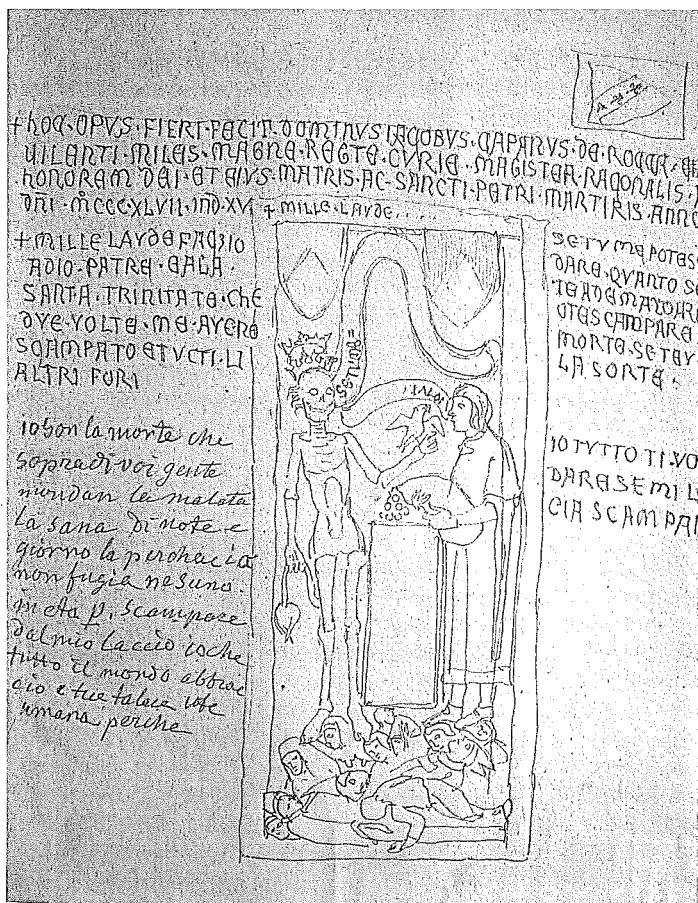 + HOC · OPVS · FIERI · FECIT · DOMINVS IACOBVS · CAPANVS · DE · ROCCA ·
UILANTI · MILES · MAGNE · REGTE · CVRIE · MAGISTER · RAGONALIS ·
HONOREM DEI · ET EIVS · MATRIS · AC · SANCTI · PETRI · MARTIRIS · ANNO
DNI · MCCCXLVII · IND · XV
+ MILLE · LAVDE...
+ MILLE LAVDE FACSIO
ADIO · PATRE · EALA ·
SANTA · TRINITATE · CHE
DVE · VOLTE · ME · AVERE
SCAMPATO ET VCTI · LI
ALTRI FORI
io son la morte che
sopra di voi gente
mundan la malata
la sana di note e
giorno la perchacia
non fugia nesuno.
in eta p. scampare
dal mio laccio io che
tutto il mondo abbrac
cio e
umana perche
SE TV ME POTES
DARE · QVANTO SE
SCAMPARE
MORTE · SE TEV
LA SORTE ·
IO TVTTO TI · VO
DARE SE MI L
CIA SCAMPA